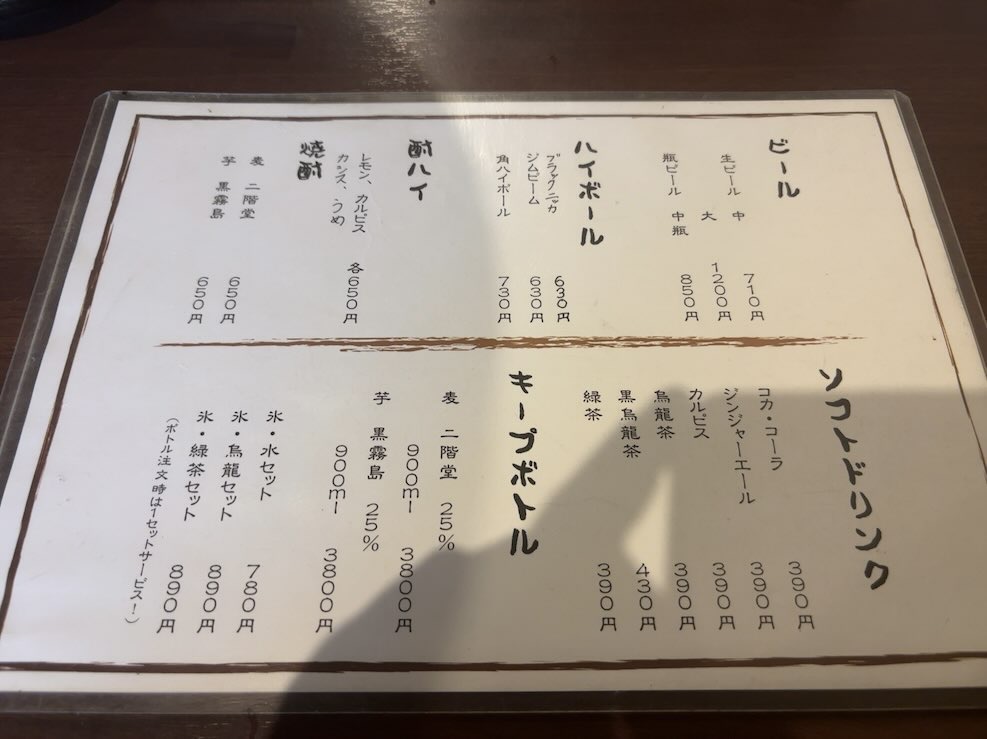 ビール
生ビール 中 710円
大 1200円
瓶ビール 中瓶 850円
ハイボール
ブラックニッカ 630円
ジムビーム 630円
角ハイボール 730円
酎ハイ
レモン、カルピス
カシス、うめ 各650円
焼酎
麦 二階堂 650円
芋 黒霧島 650円
ソフトドリンク
コカ・コーラ 390円
ジンジャーエール 390円
カルピス 390円
烏龍茶 390円
黒烏龍茶 430円
緑茶 390円
キープボトル
麦 二階堂 25%
900ml 3800円
芋 黒霧島 25%
900ml 3800円
氷・水セット 780円
氷・烏龍セット 890円
氷・緑茶セット 890円
(ボトル注文時は1セットサービス!)